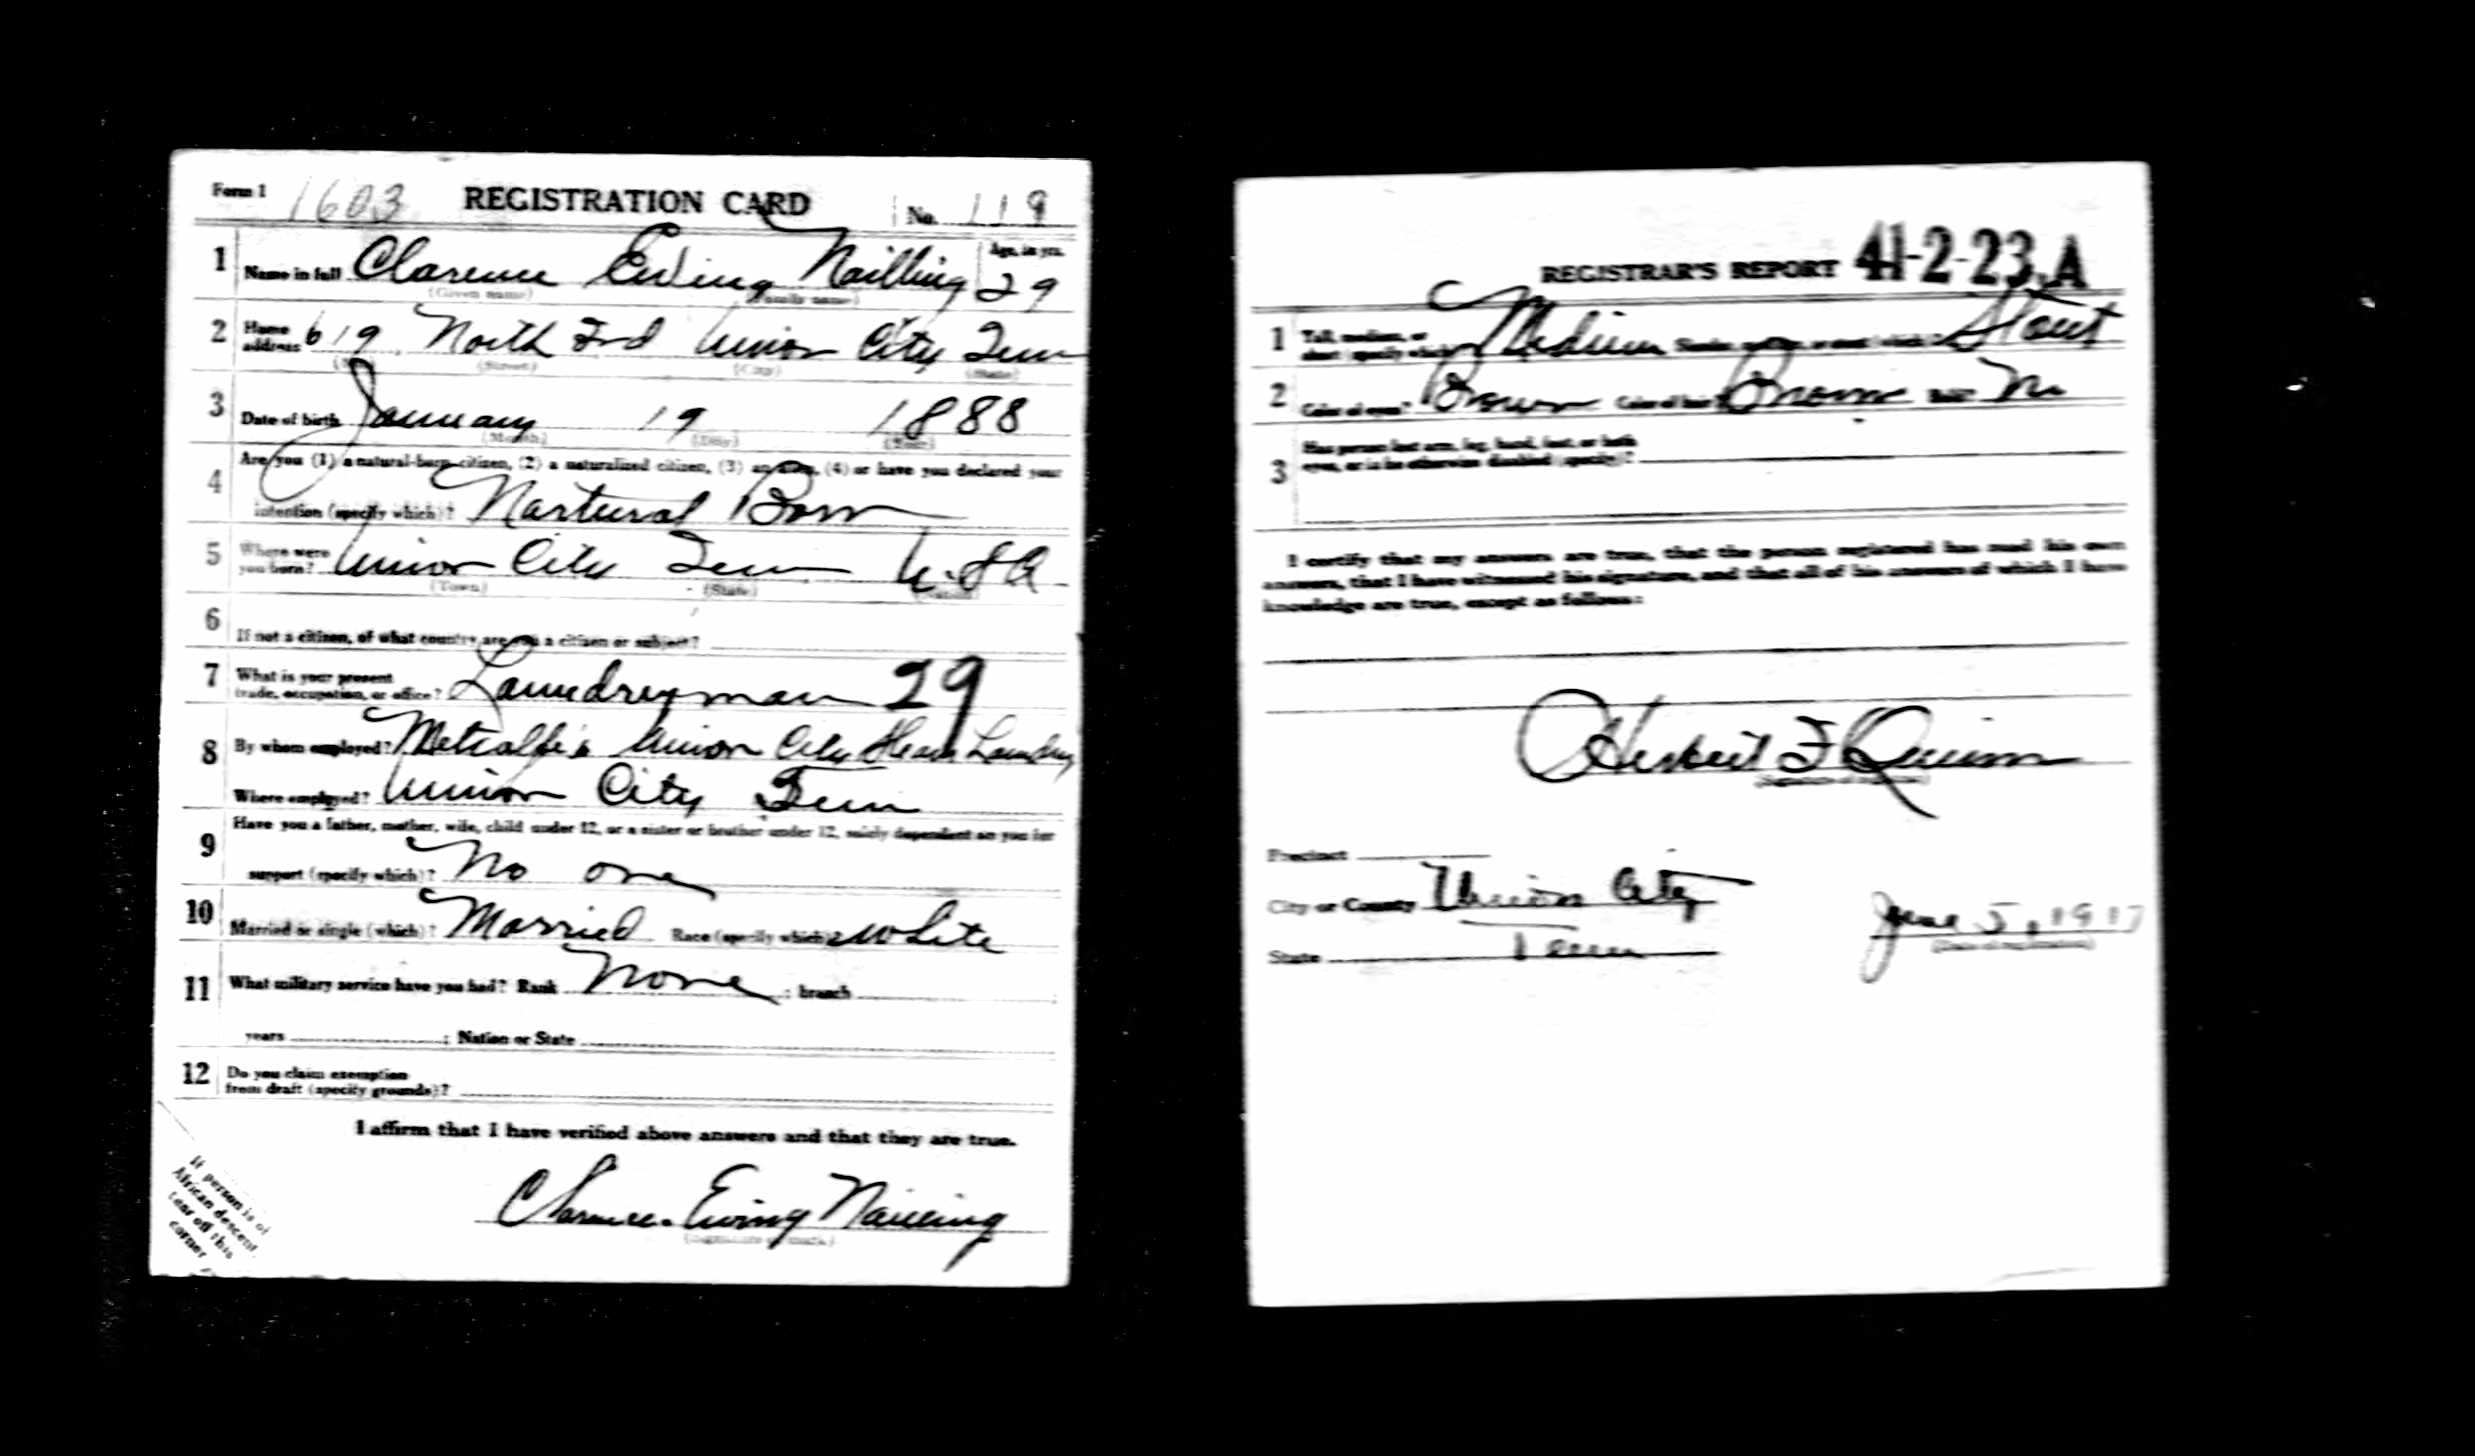 Form 1 1603 REGISTRATION CARD No. 119
1 Name in full Clarence Ewing Nailling Age, in yrs. 29
(Given name) (Family name)
2 Home address 619 North 3rd Union City Tenn
(No.) (Street) (City) (State)
3 Date of birth January 19 1888
(Month) (Day) (Year)
4 Are you (1) a natural-born citizen, (2) a naturalized citizen, (3) an alien, (4) or have you declared your
intention (specify which)? Nartural Born
5 Where were you born? Union City Tenn U.S.A
(Town) (State) (Nation)
6 If not a citizen, of what country are you a citizen or subject?
7 What is your present
trade, occupation, or office? Laundreyman 29
8 By whom employed? Metcalfe's Union City Steam Laundry
Where employed? Union City Tenn
9 Have you a father, mother, wife, child under 12, or a sister or brother under 12, solely dependent on you for
support (specify which)? No one
10 Married or single (which)? Married Race (specify which)? White
11 What military service have you had? Rank None ; branch
years ; Nation or State
12 Do you claim exemption
from draft (specify grounds)?
I affirm that I have verified above answers and that they are true.
Clarence Ewing Nailling
(Signature or mark)
If person is of
African descent,
tear off this
corner
REGISTRAR'S REPORT 41-2-23.A
1 Tall, medium, or
short (specify which)? Medium Slender, medium, or stout (which)? Stout
2 Color of eyes? Brown Color of hair? Brown Bald? No
3 Has person lost arm, leg, hand, foot, or both
eyes, or is he otherwise disabled (specify)?
I certify that my answers are true, that the person registered has read his own
answers, that I have witnessed his signature, and that all of his answers of which I have
knowledge are true, except as follows:
Herbert F Quinn
(Signature of registrar)
Precinct
City or County Union City
State Tenn
June 5, 1917
(Date of registration)